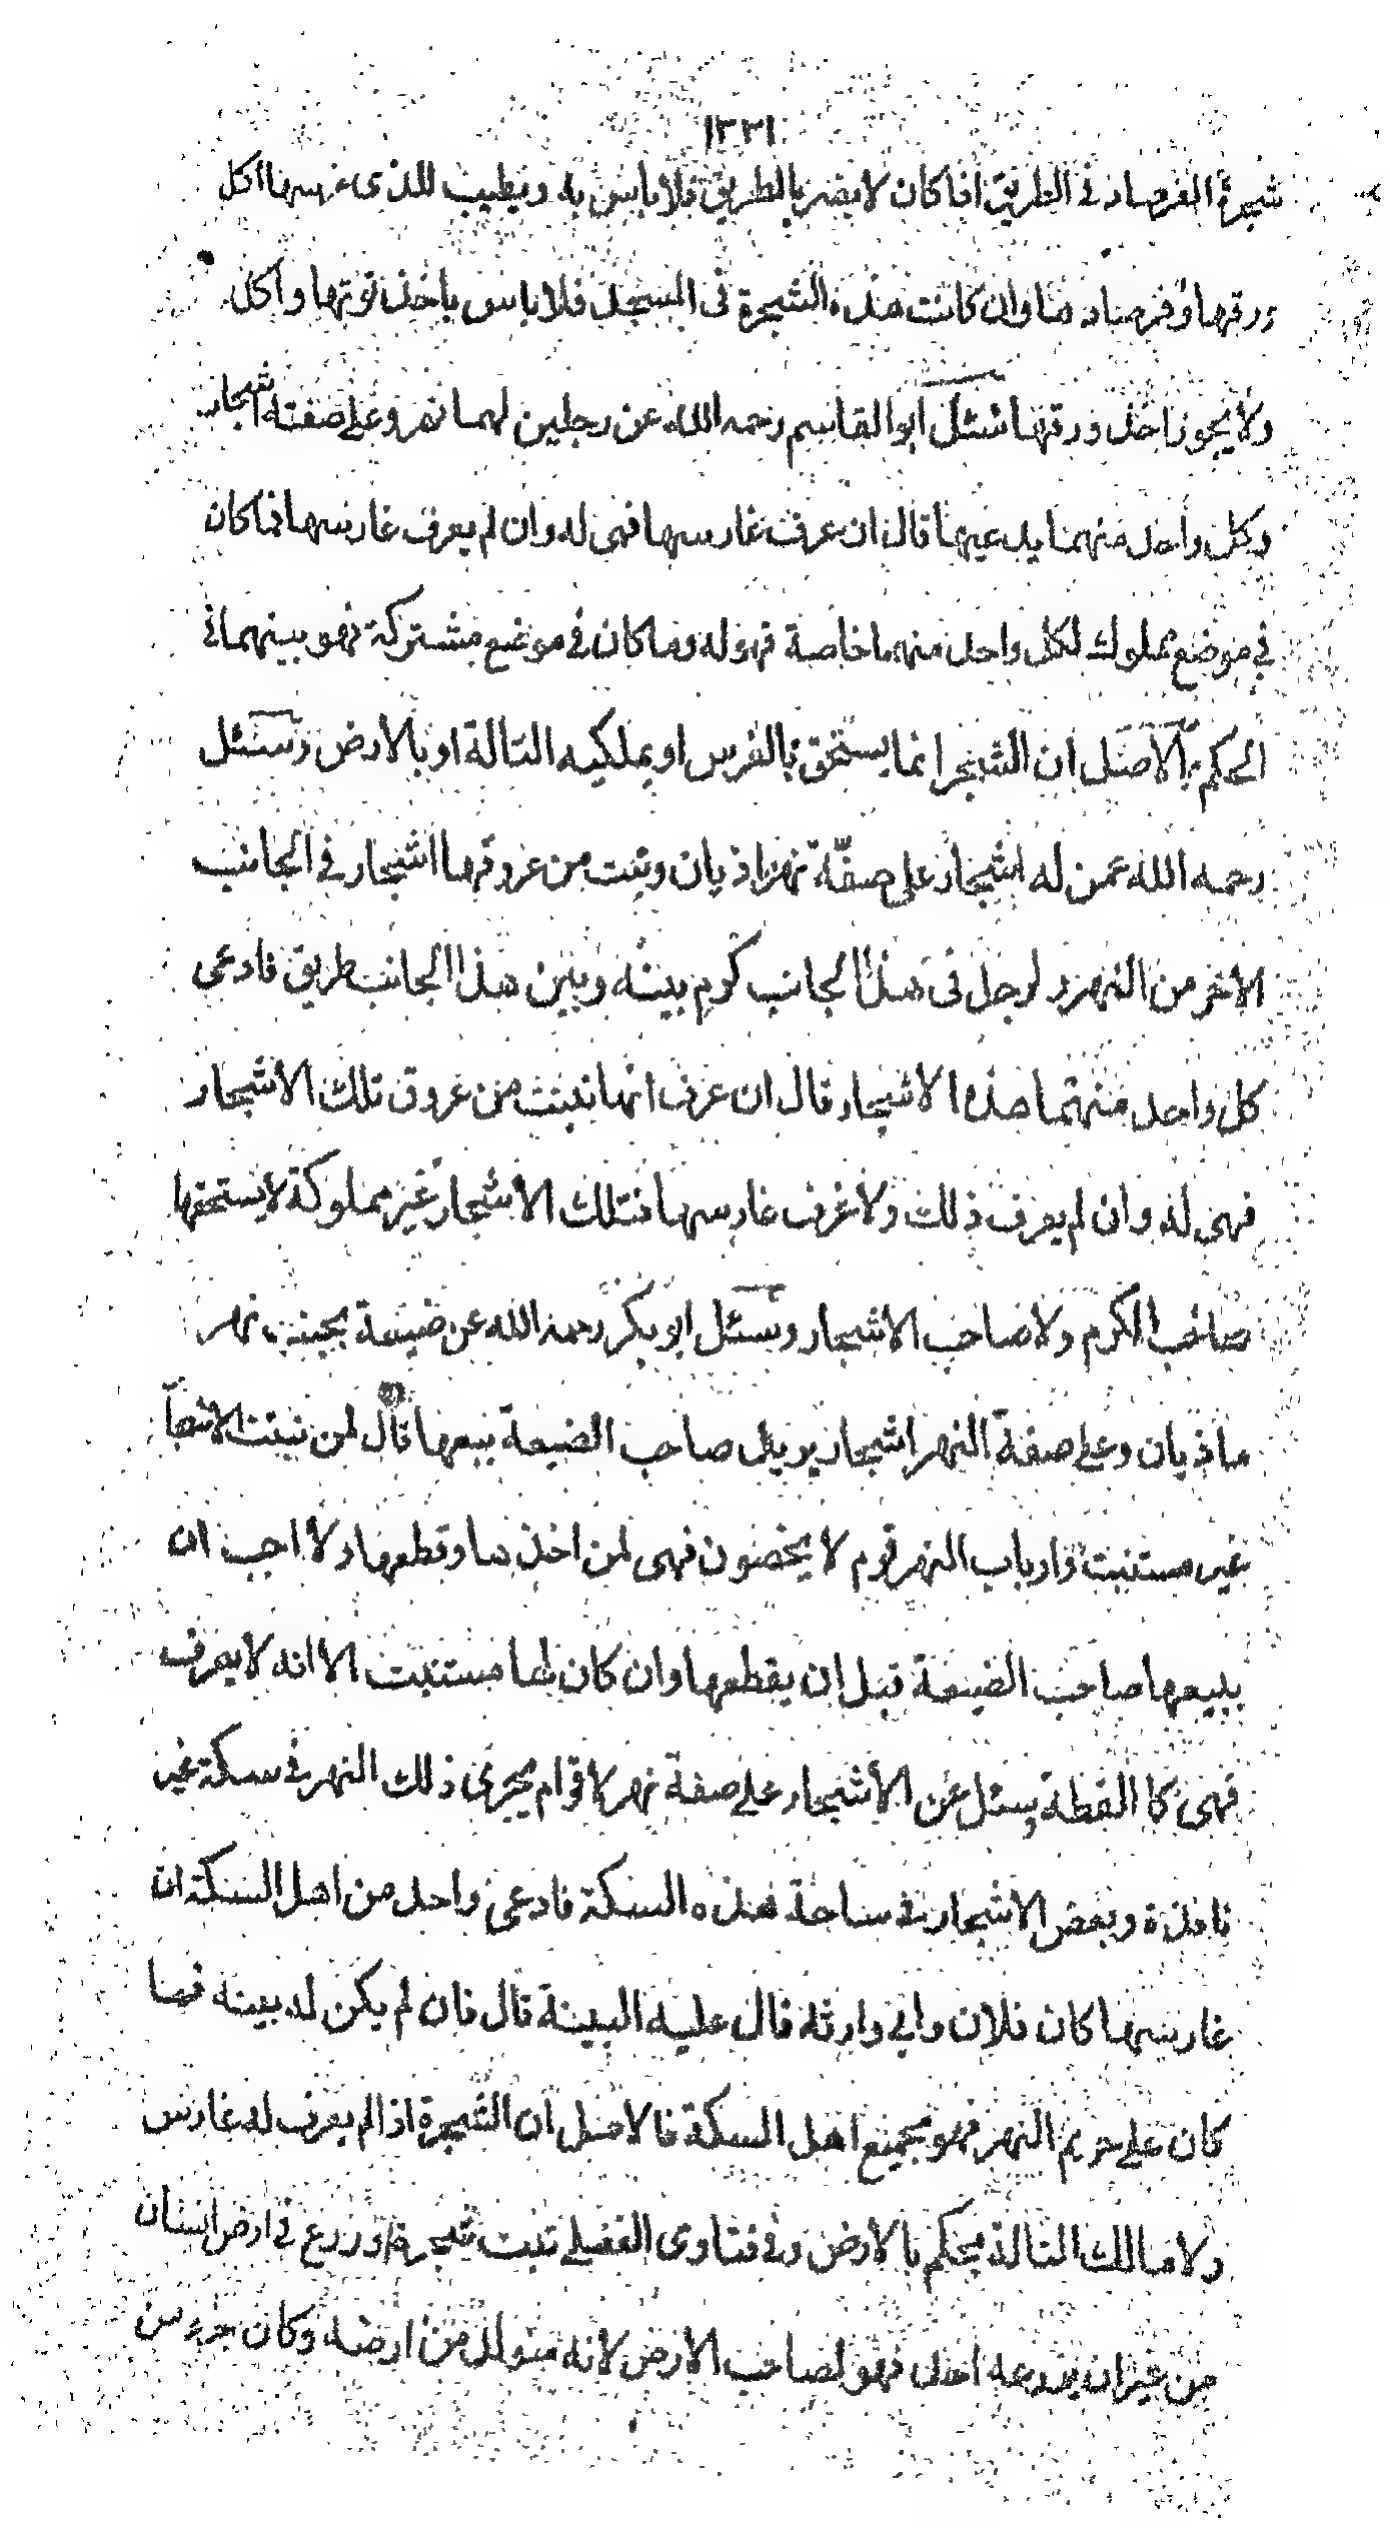 ١٣٣١
شجرة الفرصاد في الطريق اذا كان لا يضر بالطريق فلا باس به ويطيب للذى غرسها اكل
ورقها وفرصادها وان كانت هذه الشجرة فى المسجد فلا باس ياخذ توتها واكل
ولا يجوز اخذ ورقها سئل ابو القاسم رحمه الله عن رجلين لهما نهر وعلى صفته اشجار
وكل واحد منهما يدعيها قال ان عرف غارسها فهى له وان لم يعرف غارسها فما كان
في موضع مملوك لكل واحد منهما خاصة فهو له وما كان في موضع مشتركة فهو بينهما في
الحكم الاصل ان الشجر انما يستحق بالغرس او بملكيه التالة او بالارض وسئل
رحمه الله عمن له اشجار على صفّة نهر ماذيان ونبت من عروقها اشجار في الجانب
الاخر من النهر و لرجل فى هذا الجانب كرم بينه وبين هذا الجانب طريق فادعى
كل واحد منهما هذه الاشجار قال ان عرف انها نبتت من عروق تلك الاشجار
فهى له وان لم يعرف ذلك ولا عرف غارسها فتلك الاشجار غير مملوكة لا يستحقها
صاحب الكرم ولا صاحب الاشجار وسئل ابو بكر رحمه الله عن ضيعة بجنب نهر
ماذيان وعلى صفة النهر اشجار يريد صاحب الضيعة بيعها قال لمن نبتت الاشجا
غير مستنبت وارباب النهر قوم لا يحصون فهى لمن اخذها وقطعها ولا احب ان
يبيعها صاحب الضيعة قبل ان يقطعها وان كان لها مستنبت الا انه لا يعرف
فهى كا القطة وسئل عن الاشجار على صفة نهر لاقوام يجرى ذلك النهر في سكة غير
نافذة وبعض الاشجار في ساحة هذه السكة فادعى واحد من اهل السكة ان
غارسها كان فلان وانى وارثه قال عليه البينة قال فان لم يكن له بينة فما
كان على حريم النهر فهو لجميع اهل السكة فالاصل ان الشجرة اذا لم يعرف له غارس
ولا مالك التالة يحكم بالارض وفي فتاوى الفضلى نبت شجرة او زرع في ارض انسان
من غير ان يزرعه احد فهو لصاحب الارض لانه متولد من ارضه وكان جزء من